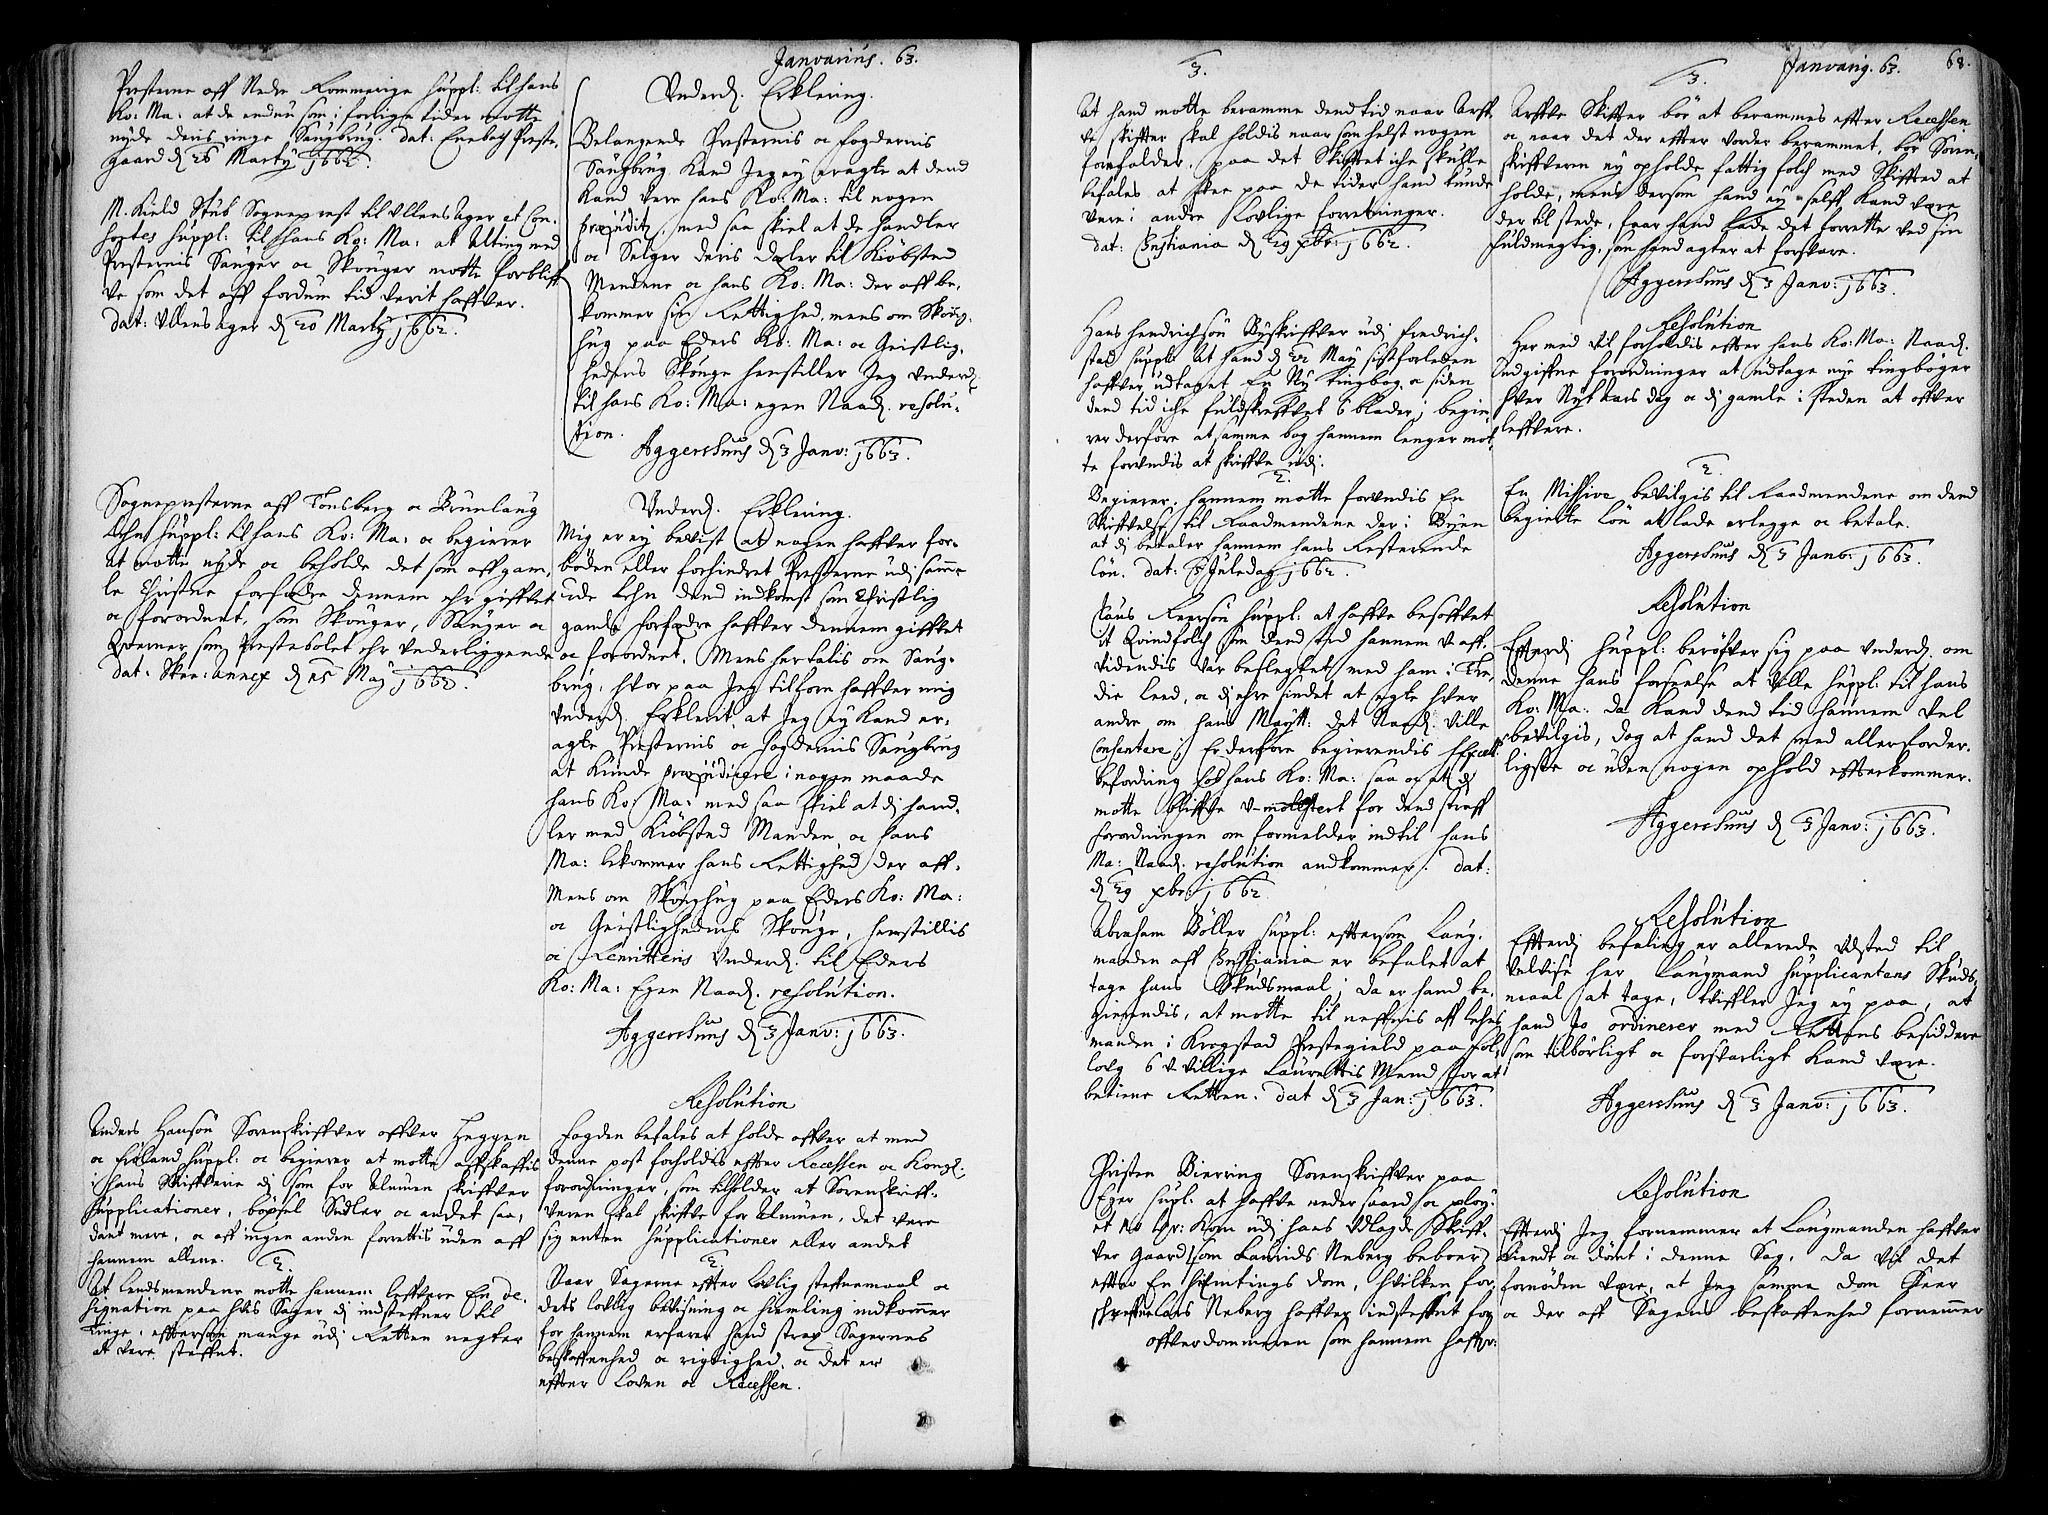 Janvarius. 63.
Presterne aff Nedre Rommerige suppl: til hans
Ko: Ma: at de endnu som i forlige tider motte
nyde deris ringe Saugbrug. dat: Enebach Preste,
gaard d 26 Marty 1662.
M. Kield Stub Sogneprest til Ullensager et Con,
sortes suppl: til hans Ko: Ma: at alting med
Presternis Sauger oc Skouger motte forbliff
ve som det aff fordum tid verit haffver.
dat: Ullensager d 20 Marty 1662.
Sognepresterne aff Tonsberg oc Brunlaug
Lehn suppl: til hans Ko: Ma: oc begierer
at motte nyde oc beholde det som aff gam,
le Christne forfædre dennem ehr giffvet
oc forordnet, som Skouger, Sauger oc
Qverner, som Prestebolet ehr underliggende
dat: Skee: annex d 15 May 1662.
Anders Hansøn Sorenskriffver offver Heggen
oc Frøland suppl: oc begierer at motte affskaffis
i hans Skifferie di som for almuen skriffver
supplicationer, børsel Sedler oc andet saa,
dant mere, oc aff ingen anden forrettis uden aff
hannem allene.
2.
At Lendsmendene motte hannem leffvere En de,
signation paa hvis Sager di indsteffner til
Tinge, effterson mange udi Retten negter
at vere steffnt.
Underd. Erklering.
Belangende Presternis oc fogdernis
Saugbrug Kand Jeg ey eragte at dend
Kand vere hans Ko: Ma: til nogen
præjuditz, med saa skiel at de handler
oc Selger deris Deeler til Kiøbsted
Mendene oc hans Ko: Ma: der aff be,
kommer sin Rettighed, mens om Skoug,
hug paa Eders Ko: Ma: oc Geistlig,
hedens Skouge henstiller Jeg underd.
til hans Ko: Ma: egen Naad. resolu,
tion.
Aggershuus d 3 Janv: 1663.
Underd. Erklering.
Mig er ey bevist at nogen haffver for,
böden eller forhindret Presterne udi samme
tide Lehn dend indkomst som Christlig
gamle forfædre haffver dennem giffvet
oc forordnet. Mens her talis om Saug,
brug, hvor paa Jeg tilforn haffver mig
underd. Erklerit, at Jeg ey kand er,
agte Presternis oc fogdernis Saugbrug
at kunde præjudicere i nogen maade
hans Ko: Ma: med saa skiel at di hand,
ler med Kiöbsted Manden, oc hans
Ma: bekommer hans Rettighed der aff.
Mens om Skoughug paa Eders Ko: Ma:
oc Geistlighedens Skouge, henstillis
oc Remitteris Underd. til Eders
Ko: Ma: Egen Naad. resolution.
Aggershuus d 3 Janv: 1663.
Resolution
Fogden befales at holde offver at med
denne post forholdis effter Recessen oc Kongl.
forordninger, som tilholder at Sorenskriff,
veren skal skriffve for almuen, det vere
sig enten supplicationer eller andet
2.
Naar Sagerne effter Lovlig steffnemaal oc
dets lovlig bevisning oc hiemling indkommer
for hannem erfarer hand strax Sagernes
beskaffenhed oc rigtighed, oc det er
effter Loven oc Recessen.
Janvarij. 63. 68.
3.
At hand motte beramme dend tid naar Arff,
ve skiffter skal holdis naar som helst nogen
forefalder, paa det Skifftet iche skulle
befales at skee paa de tider hand kunde
vere i andre Lovlige forretninger.
dat: Christiania d 29 xbr: 1662.
Hans Hendrichsøn Byskriffver udi Fredrich,
stad suppl: At hand d 22 May sistforleden
haffver udtaget En Ny tingbog, oc siden
dend tid iche fuldskreffvet 6 blader; begie
rer derfore at samme bog hannem lenger mot,
te forundis at skriffve udi.
2.
Begierer, hannem motte forundis En
Skriffvelse til Raadmendene der i Byen
at di betaler hannem hans Resterende
Lön. dat: 3 Juledag 1662.
Claus Reersøn suppl: at haffve besoffvet
it Qvindfolch som dend tid hannem u-aff,
videndis var beslegtet med ham i Tre,
die leed, oc di ehre sindet at egte hver
andre om hans Maytt: det Naad. ville
Consentere; Er derfore begierendis Statth.
befordring hos hans Ko: Ma: saa oc at di
motte bliffve u-molestert for dend straff
forordningen om formelder indtil hans
Ma: Naad. resolution andkommer. dat:
d 29 xbr: 1662
Abraham Böller suppl: efftersom Laug,
manden aff Christiania er befalet at
tage hans Skudsmaal; da er hand be,
gierendis, at motte til neffnis aff Lehns
manden i Krogstad Prestegield paa Fol,
lovg 6 u-villige Laurettis Mend for at
betiene Retten. dat d 3 Jan: 1663.
Christen Bierring Sorenskriffver paa
Eger supl: at haffve neder saaed oc ploy:
et No Qr: Korn udi hans Udlagde Skriff,
ver gaard som Laurids Neberg beboer,
effter En hiemtings dom, hvilken for,
schreffne Lars Neberg haffver indsteffnt for
offverdommeren som hannem haffver:
3.
Arffve Skiffter bör at berammes effter Recessen
oc naar det der effter vorder berammet, bör Soren,
skriffveren ey opholde fattig folch med Skifftet at
holde, mens dersom hand ey self kand være
der til stede, faar hand lade det forrette ved sin
fuldmegtig, som hand agter at forsvare.
Aggershuus d 3 Janv: 1663.
Resolution
Her med vil forholdis effter hans Ko: Ma: Naad.
udgiffne forordninger at udtage nye tingböger
hver Nytaars dag oc di gamle i steden at offver
leffvere.
2.
En Missive bevilgis til Raadmendene om dend
begierte Lön at lade erlegge oc betale.
Aggershuus d 3 Janv: 1663.
Resolution
Effterdi suppl: beröffver sig paa underd. om
denne hans forseelse at ville suppl: til hans
Ko: Ma: da kand dend tid hannem vel
bevilgis, dog at hand det med allerforder,
ligste oc uden nogen ophold effterkommer.
Aggershuus d 3 Janv: 1663.
Resolution
Effterdi befaling er allerede udsted til
velvise her Laugmand supplicantens Skuds,
maal at tage, tviffler Jeg ey paa, at
hand jo ordinerer med Rettens besiddere
som tilbörligt oc forsvarligt kand være.
Aggershuus d 3 Janv: 1663.
Resolution
Effterdi Jeg fornemmer at Laugmanden haffver
kiendt oc dömt i denne Sag, da vil det
fornöden være, at Jeg samme dom seer
oc der aff Sagens beskaffenhed fornemmer